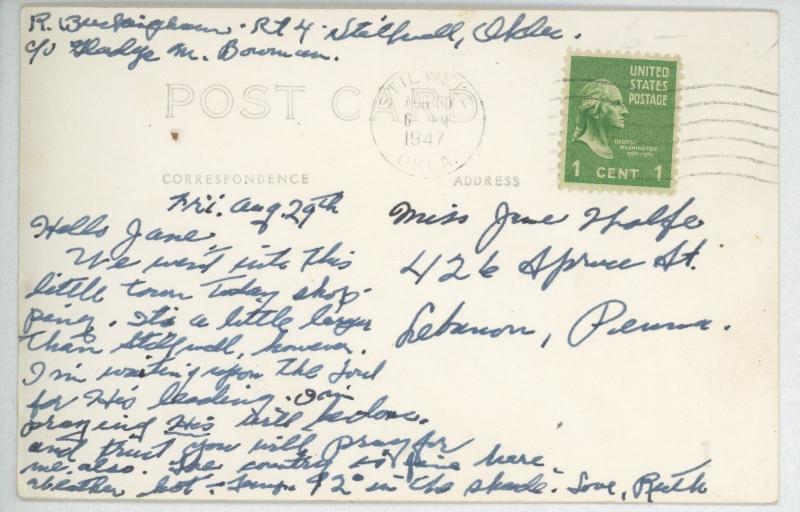 R. Buckingham. Rt 4. Stillwell, Okla.
c/o Gladys M. Bowman.
POST CARD
STILWELL
AUG 30
6 PM
1947
OKLA.
UNITED
STATES
POSTAGE
GEORGE
WASHINGTON
1 CENT 1
CORRESPONDENCE
ADDRESS
Fri. Aug. 29th
Hello Jane,
We went into this
little town today shop-
ping. It's a little larger
than Stillwell, however.
I'm waiting upon the Lord
for His leading. I'm
praying His will be done.
and trust you will pray for
me also. The country is fine here.
Weather hot - Temp. 92° in the shade. Love, Ruth
Miss Jane
426 Spruce St.
Lebanon, Penna.